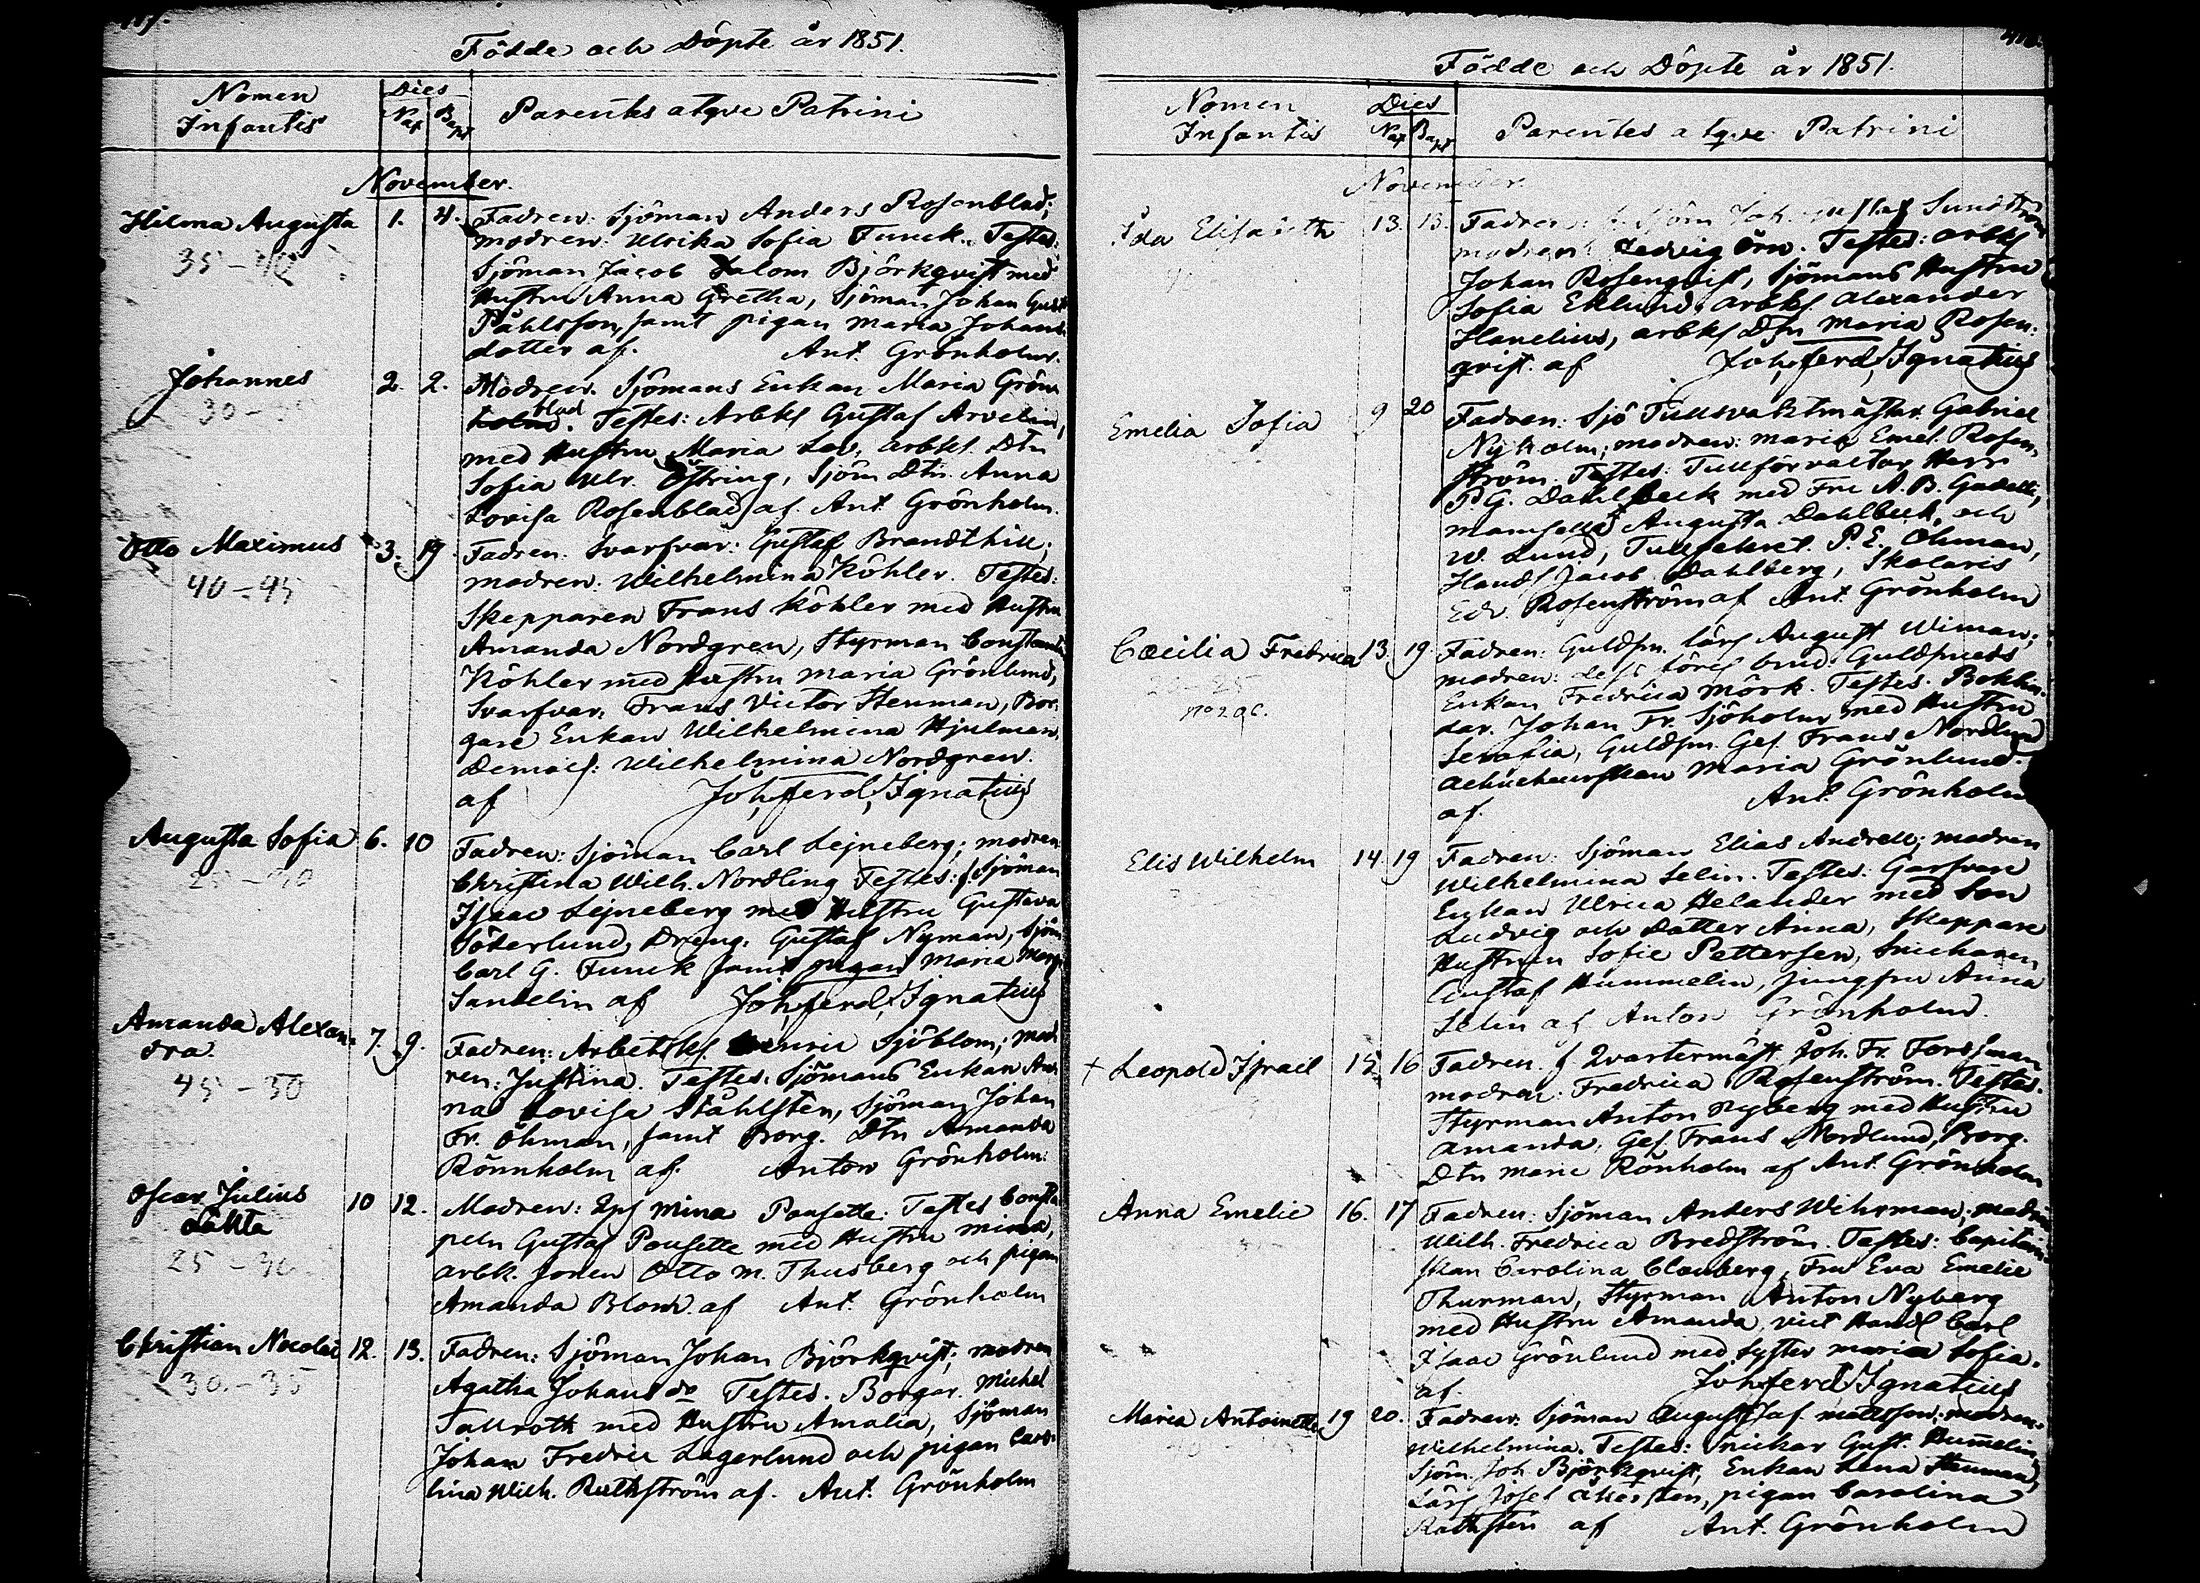 Födde och Döpte år 1851.
Nomen Infantis
Dies
Nat Bapt
Parentes atqve Patrini
November.
Helena Augusta 1. 4. Fadren: Sjöman Anders Rosenblad;
35-40 modren: Ulrika Sofia Funck. Testes:
Sjöman Jacob Salom Björkqvist med
Hustru Anna Gretha, Sjöman Johan Gust
Påhlsson, samt pigan Maria Johans
dotter af. Ant. Grönholm.
Johannes 2. 2. Modren. Sjömans Enkan Maria Grön
30- blad. Testes: Arbks Gustaf Arvelin,
med Hustru Maria Lov, arbks. Dtn
Sofia Ulr. Östring, Sjöm Dtn. Anna
Lovisa Rosenblad af. Ant Grönholm.
Otto Maximus 3. 19. Fadren. Svarfvar: Gustaf Brandthill;
40-45 modren: Wilhelmina Köhler. Testes:
Skepparen Frans Köhler med Hustru
Amanda Nordgren, Styrman Constantin
Köhler med Hustru Maria Grönlund,
Svarfvar: Frans Victor Stenman, Bor
gare Enkan Wilhelmina Hjulman,
Demois: Wilhelmina Nordgren.
af Joh, ferd, Ignatius
Augusta Sofia 6. 10 Fadren: Sjöman Carl Lejneberg; modren
Christina Wilh. Nordling Testes: f. Sjöman
Isaac Lejneberg med Hustru Gustava
Söderlund, Dreng: Gustaf Nyman, Sjöm
Carl G. Funck samt pigan Maria Marg
Sandelin af Joh, ferd, Ignatius
Amanda Alexan- 7. 9. Fadren: Arbetsks. Henric Sjöblom; mod
dra. ren: Justina. Testes: Sjömans Enkan An
45-50 na Lovisa Ståhlsten, Sjöman Johan
Fr. Öhman, samt Borg. Dtn Amanda
Rönnholm af. Anton Grönholm.
Oscar Julius 10 12. Modren: Qps Mina Pousette. Testes Consta
peln Gustaf Pousette med Hustru Mina,
25-30 arbk. Sonen Otto M. Thusberg och pigan
Amanda Blom. af Ant. Grönholm
Christian Nicolai 12. 13. Fadren: Sjöman Johan Björkqvist; modren
30-35 Agatha Johans dr Testes. Borgar. Michel
Tallroth med Hustru Amalia, Sjöman
Johan Fredric Lagerlund och pigan Caro-
lina Wilh. Ruthström af. Ant. Grönholm
Födde och Döpte år 1851.
Nomen Infantis
Dies
Nat Bapt
Parentes atqve Patrini
November.
Ida Elisabeth 13. 13. Fadren: Sjöm Joh. Gustaf Sundström
modren Hedvig Örn. Testes: arbks
Johan Rosenqvist, Sjömans Hustru
Sofia Eklund, arbks Alexander
Hanelius, arbks Dtn Maria Rosen-
qvist. af Joh, ferd, Ignatius
Emelia Sofia 9 20 Fadren: Sjö Tullsvaktmästar Gabriel
Nyholm; modren: Maria Emel. Rosen-
ström. Testes: Tullförvaltar Herr
P. G. Dahlbeck med Fru A. B. Gadelli,
Mamsell Augusta Dahlbeck, och
W. Lund, P. E. Öhman,
Hands Jacob Dahlberg, Skolaris
Edv. Rosenström af Ant. Grönholm
Cæcilia Fredrica 13. 19. Fadren: Guldsm. lärl August Wiman;
modren: dess brud: Guldsmeds
20-25 Enkan Fredrica Mörk. Testes. Bokbin-
No 206. dar. Johan Fr. Sjöholm med Hustru
Serafia, Guldsm. Ges. Frans Nordlund
Maria Grönlund.
af. Ant. Grönholm
Elis Wilhelm 14. 19 Fadren: Sjöman Elias Andrell; modren
Wilhelmina Selin. Testes: Garfvare
Enkan Ulrica Helander med Son
Ludvig och Dotter Anna, Skeppare
Hustrun Sofie Pettersen, Snickaren
Gustaf Hummelin, jungfru Anna
Selin af Anton Grönholm.
+ Leopold Israel 15. 16 Fadren. f Qvartermäst. Joh. Fr. Forssman
modren: Fredrica Rosenström. Testes.
Styrman Anton Nyberg med Hustru
Amanda, Ges. Frans Nordlund, Borg.
Dtn Marie Rönholm af Ant. Grönholm
Anna Emelie 16. 17 Fadren: Sjöman Anders Wihrman; modren
Wilh. Fredrica Bredström. Testes: Capitain-
skan Carolina Clouberg, Fru Eva Emelie
Thurman, Styrman Anton Nyberg
med Hustru Amanda, vict Handl Carl
Isaac Grönlund med Syster Maria Sofia.
af. Joh, ferd, Ignatius
Maria Antoinette 19 20. Fadren. Sjöman August Isaf. Mattsson; modren
Wilhelmina. Testes: Snickar Gust. Humelin,
Sjöm. Joh Björkqvist, Enkan Lena Stenman,
Lärl Josef Åkersten, pigan Carolina
Rothstén af Ant. Grönholm